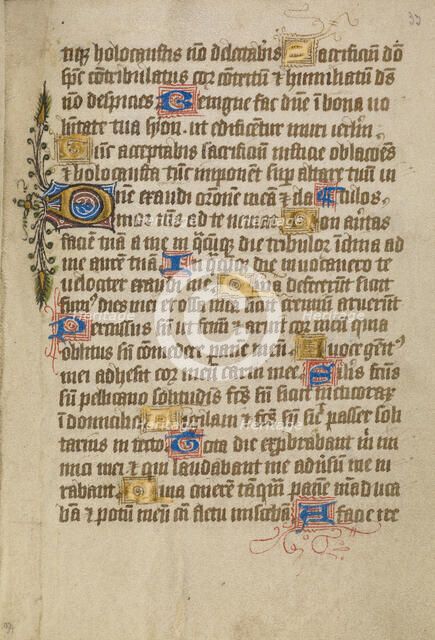 tisq; holocaustis nō delectabis Sacrificiū dō
sp̄c cōtribulatus cor cōtritū & humiliatū ds̄
nō despicies Benigne fac dn̄e ī bona uo
lūtate tua syon. ut edificētur muri ierlm̄.
Tūc acceptabis sacrificiū iusticie oblacōes
& holocausta tūc imponēt sup altare tuū ui
Dn̄e exaudi orōnē meā & cla tulos.
mor meus ad te ueniat Non auertas
faciē tuā a me ī q̄cūq; die tribulor īclina ad
me aurē tuā In q̄cūq; die inuocauero te
uelociter exaudi me Quia defecerūt sicut
fumꝰ dies mei & ossa mea sicut cremiū aruerūt
Percussus sū ut fenū & aruit cor meū quia
oblitus sū comedere panē meū. A uoce gemitꝰ
mei adhesit os meū carni mee. Similis factus
sū pellicano solitudīs fc̄s sū sicut nicticorax
ī domicilio Vigilaui & fc̄s sū sic̄ passer soli
tarius in tecto Tota die exprobrabant m̄ ini
mici mei & qui laudabant me aduersū me iu
rabant Quia cinerē tāquā panē māduca
bā & potū meū cū fletu miscebā A facie ire